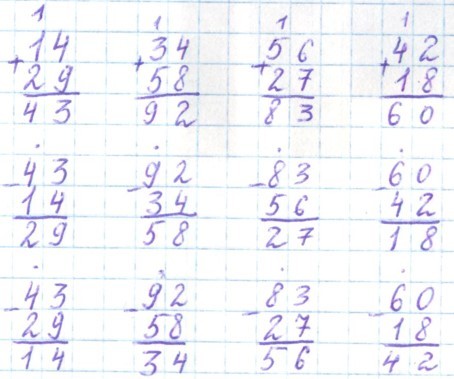 1 1 1 1
14 34 56 42
+ + + +
29 58 27 18
43 92 83 60
. . . .
43 92 83 60
- - - -
14 34 56 42
29 58 27 18
. . . .
43 92 83 60
- - - -
29 58 27 18
14 34 56 42